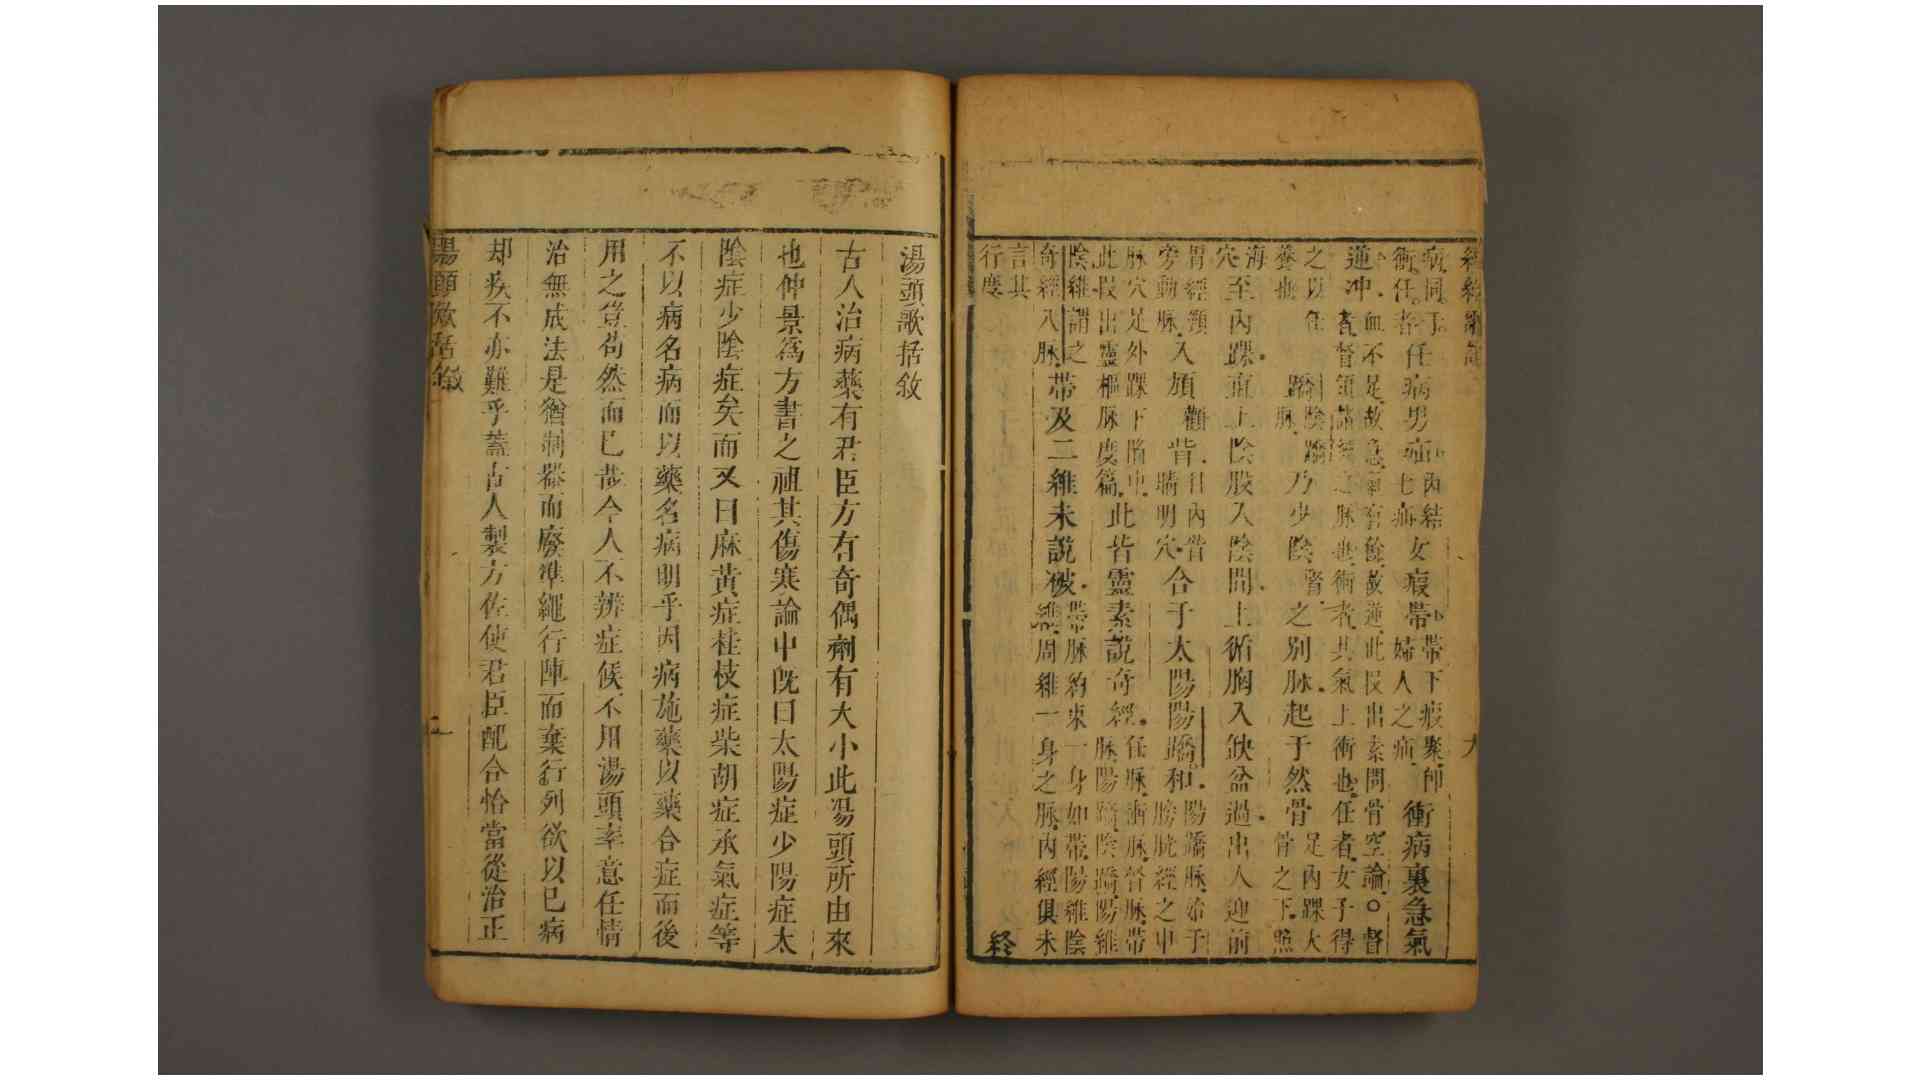 經絡歌訣 六
病同于衝任者任病男疝內結七疝女瘕帶帶下瘕聚卽婦人之疝衝病裏急氣
逆冲血不足故急氣有餘故逆此段出素問骨空論○督者督領諸經之脈也衝者其氣上衝也任者女子得
之以任養也蹻陰蹻脈乃少陰腎之別脈起于然骨足內踝大骨之下照
海穴至內踝直上陰股入陰間上循胸入缺盆過出人迎前
胃經頸旁動脈入頄顴眥目內眥睛明穴合于太陽陽蹻和陽蹻脈始于膀胱經之申
脈穴足外踝下陷中此段出靈樞脈度篇此皆靈素說奇經任脈衝脈督脈帶脈陽蹻陰蹻陽維
陰維謂之奇經八脈帶及二維未說破帶脈約束一身如帶陽維陰維周維一身之脈內經俱未
言其行度 終
湯頭歌括敘
古人治病藥有君臣方有奇偶劑有大小此湯頭所由來
也仲景爲方書之祖其傷寒論中旣曰太陽症少陽症太
陰症少陰症矣而又曰麻黃症桂枝症柴胡症承氣症等
不以病名病而以藥名病明乎因病施藥以藥合症而後
用之豈苟然而已哉今人不辨症候不用湯頭率意任情
治無成法是猶制器而廢準繩行陣而棄行列欲以已病
却疾不亦難乎蓋古人製方佐使君臣配合恰當從治正
湯頭歌括敘 一